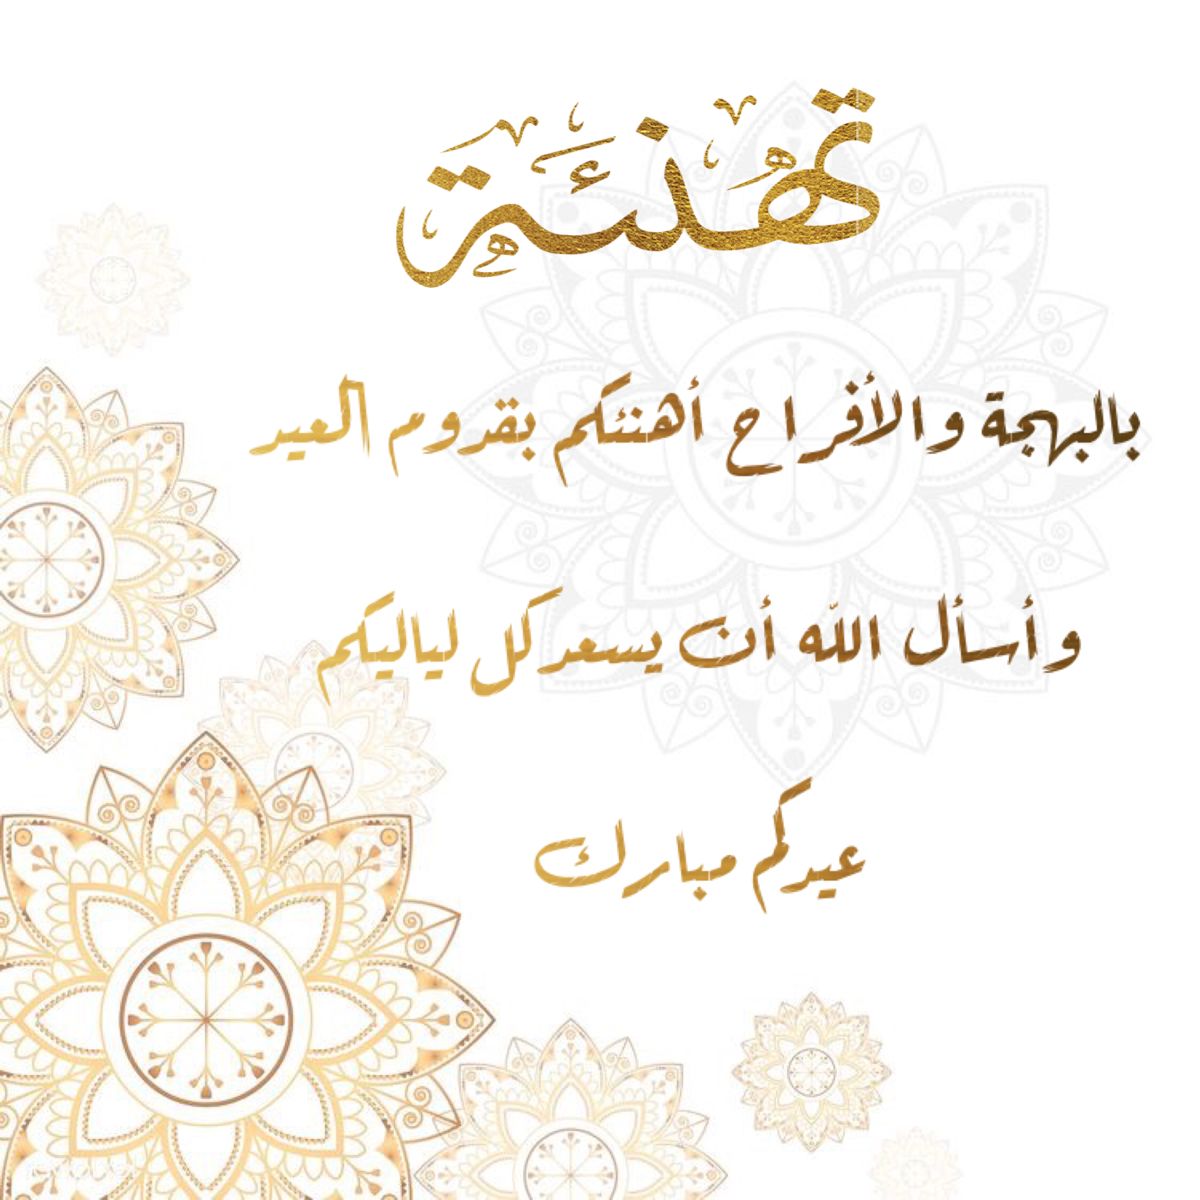 تهنئة
بالبهجة والأفراح أهنئكم بقدوم العيد
وأسأل الله أن يسعد كل لياليكم
عيدكم مبارك